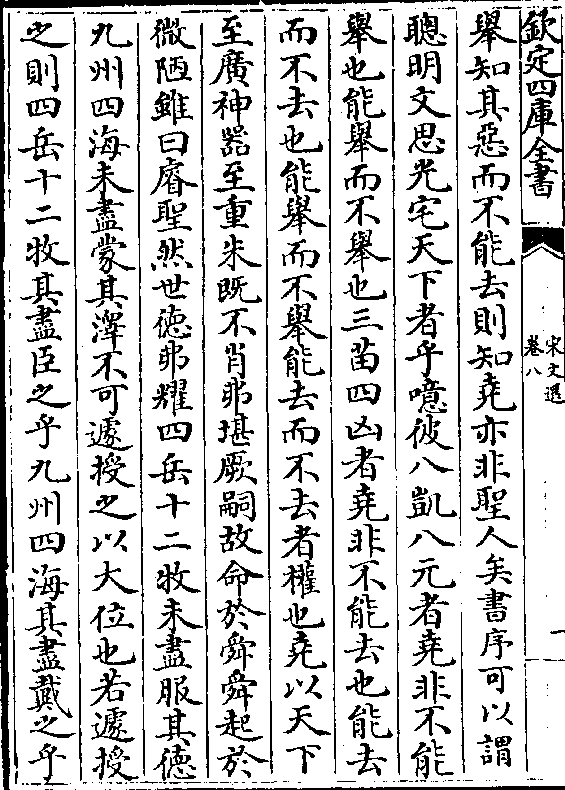 欽定四庫全書
宋文選
卷八
一
舉知其惡而不能去則知堯亦非聖人矣書序可以謂
聰明文思光宅天下者乎噫彼八凱八元者堯非不能
舉也能舉而不舉也三苗四凶者堯非不能去也能去
而不去也能舉而不舉能去而不去者權也堯以天下
至廣神器至重朱既不肖弗堪厥嗣故命於舜舜起於
微陋雖曰睿聖然世徳弗耀四岳十二牧未盡服其徳
九州四海未盡蒙其澤不可遽授之以大位也若遽授
之則四岳十二牧其盡臣之乎九州四海其盡戴之乎